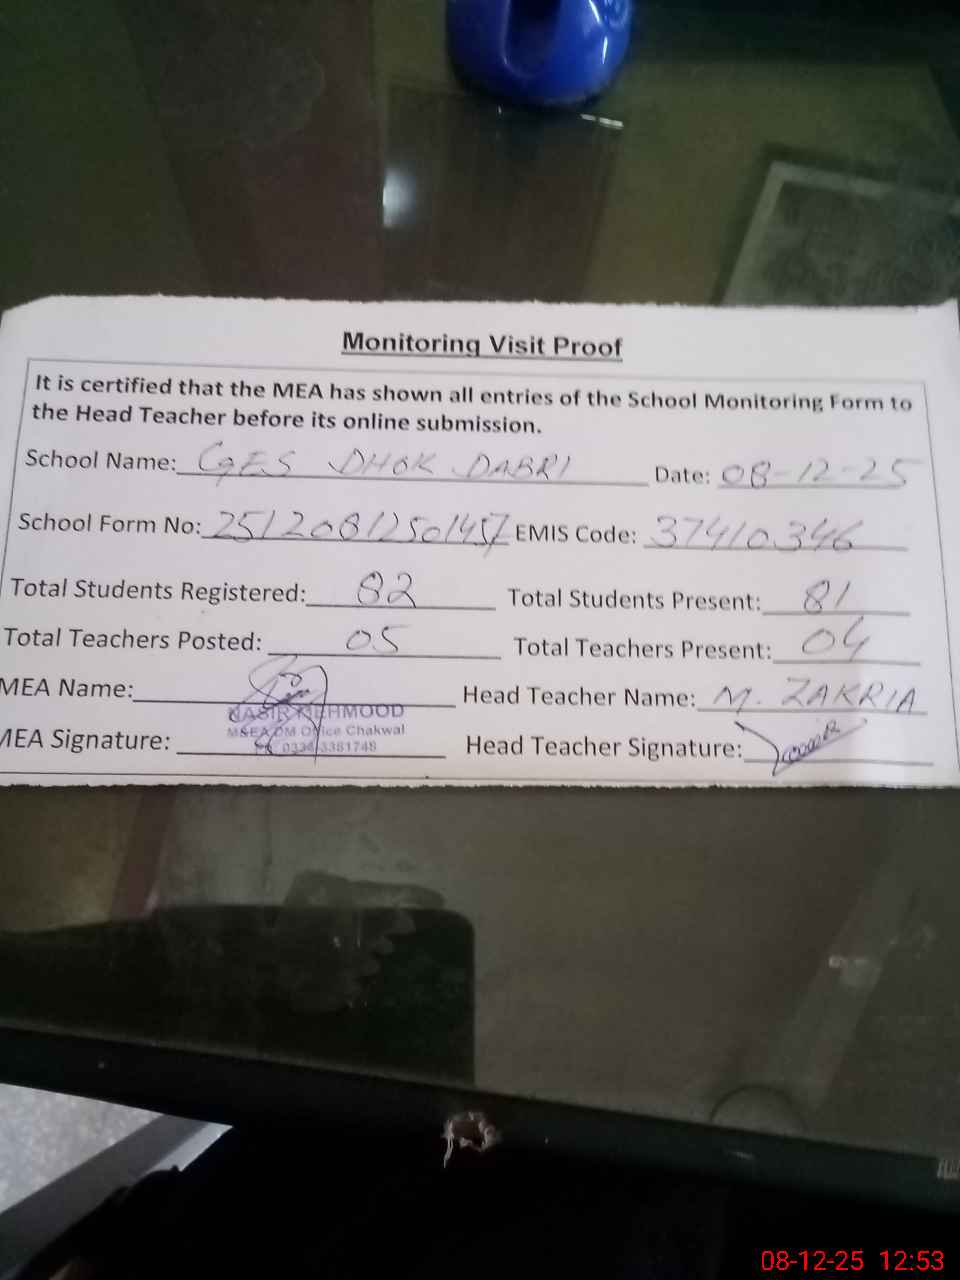 Monitoring Visit Proof
It is certified that the MEA has shown all entries of the School Monitoring Form to
the Head Teacher before its online submission.
School Name: GES DHOK DABRI Date: 08-12-25
School Form No: 25120812501457 EMIS Code: 37410346
Total Students Registered: 82 Total Students Present: 81
Total Teachers Posted: 05 Total Teachers Present: 04
MEA Name: Head Teacher Name: M. ZAKRIA
NASIR MEHMOOD
M&EA DM Office Chakwal
MEA Signature: Head Teacher Signature:
08-12-25 12:53